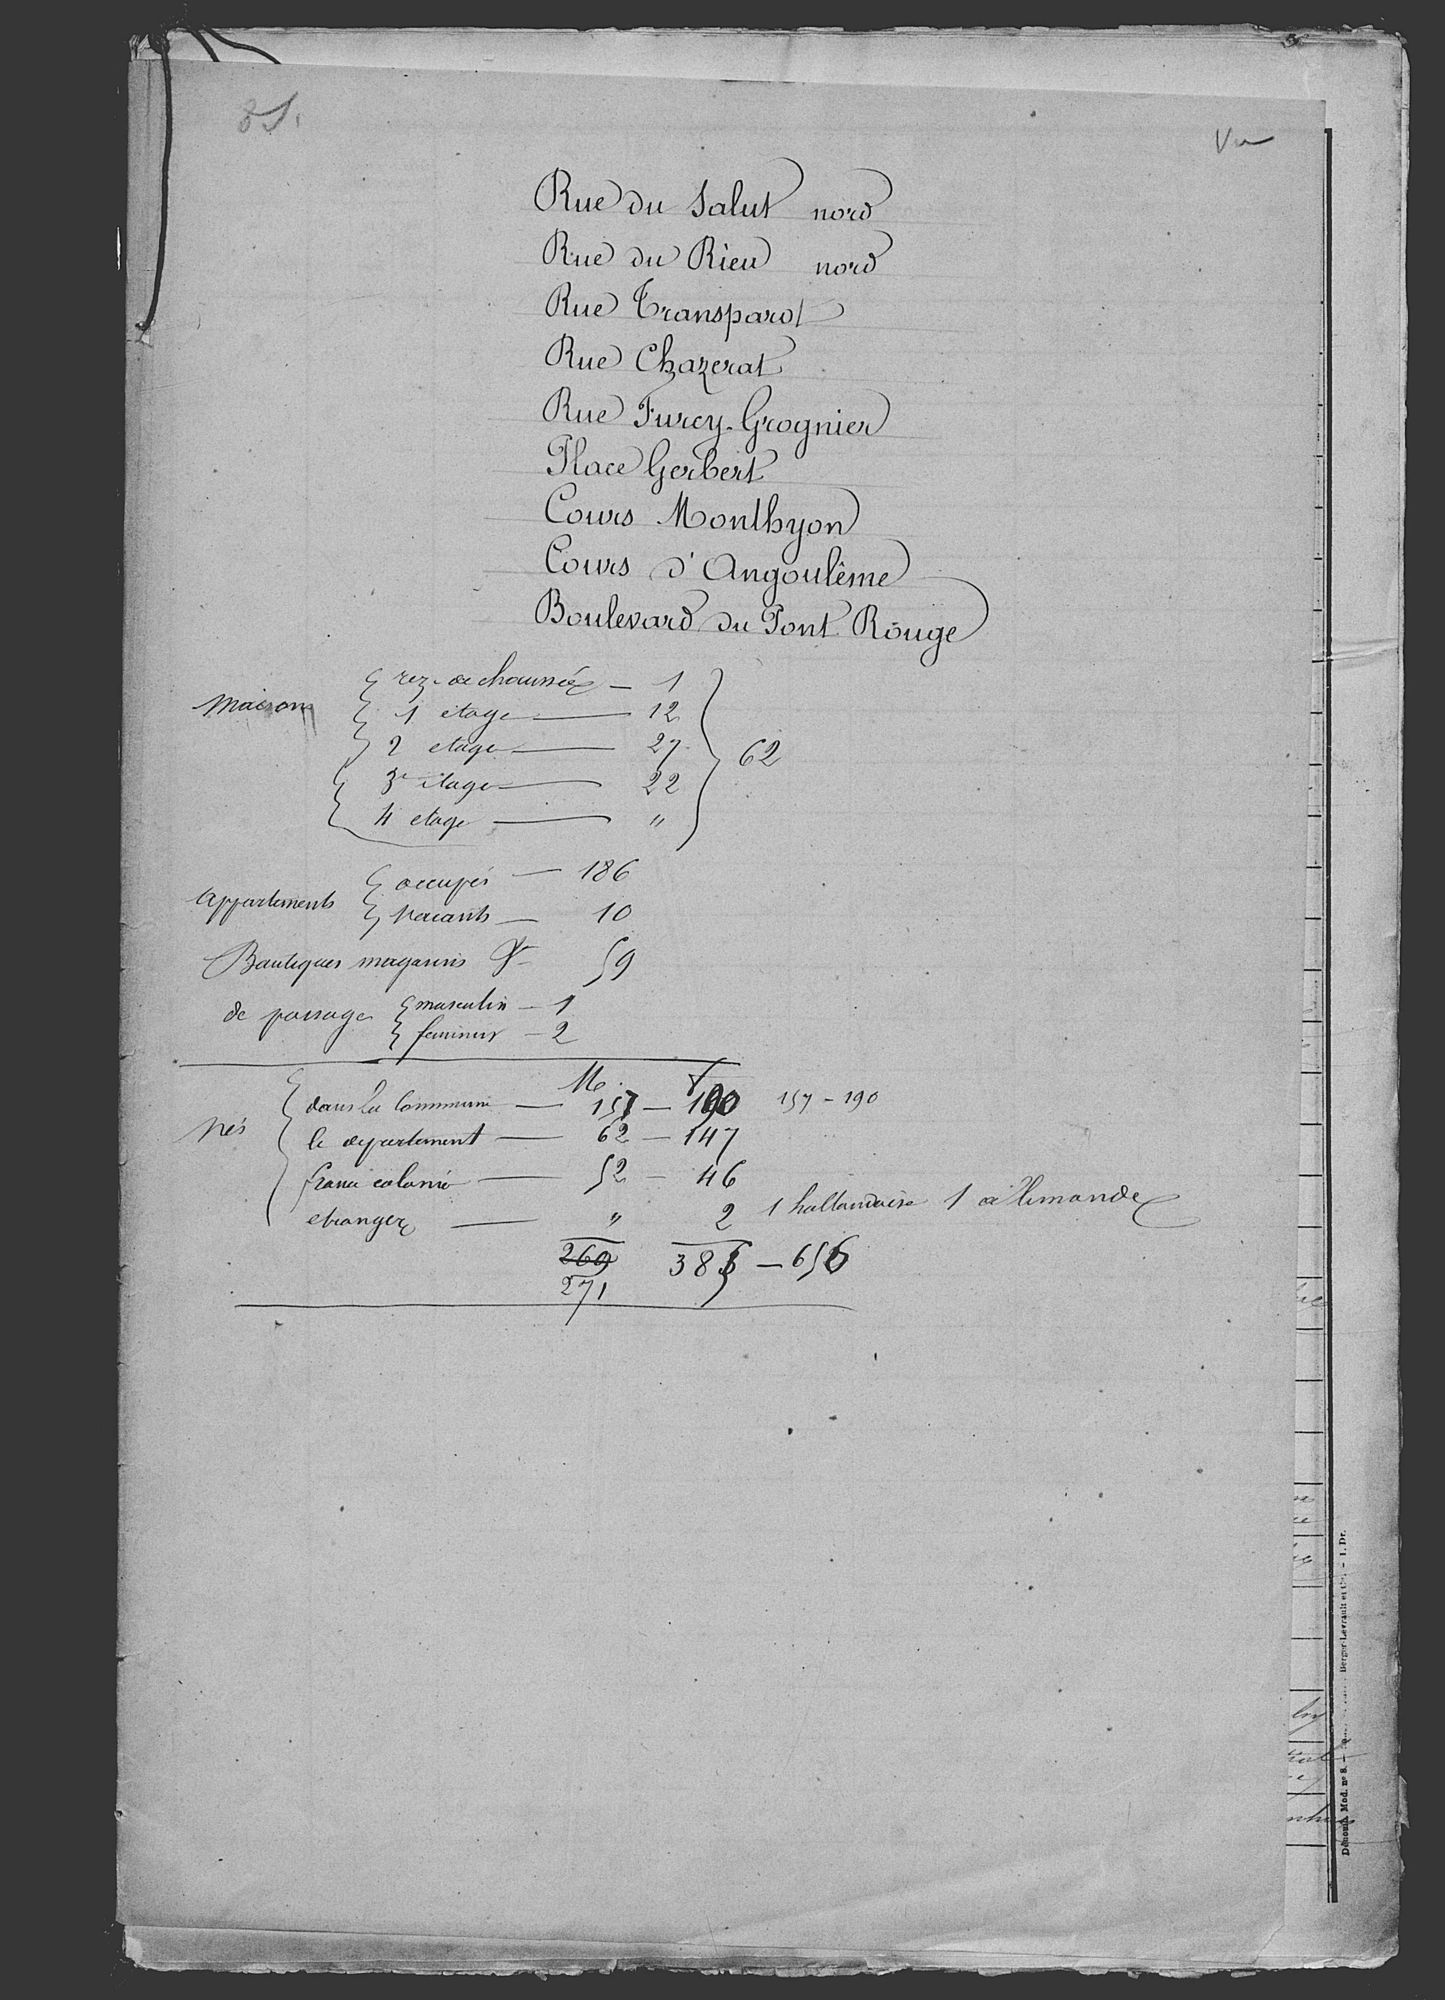 81.
Vu
Rue du Salut nord
Rue du Rieu nord
Rue Transparot
Rue Chazerat
Rue Furcy-Grognier
Place Gerbert
Cours Monthyon
Cours d'Angoulême
Boulevard du Pont Rouge
Maisons
rez-de chaussée — 1
1 etage — 12
2 etage — 27
3e étage — 22
4 etage — "
62
appartements
occupés — 186
vacants — 10
Boutiques magasins & 59
de passage
masculin — 1
feminin — 2
M. F
nés
dans la Commune — 157 — 190 157 - 190
le departement — 62 — 147
france colonie — 52 — 46
etranger — " 2 1 hollandaise 1 allemande
269 385 — 656
271
Dénomb. Mod. nº 8. — Berger-Levrault et Cie. — 1. Dr.